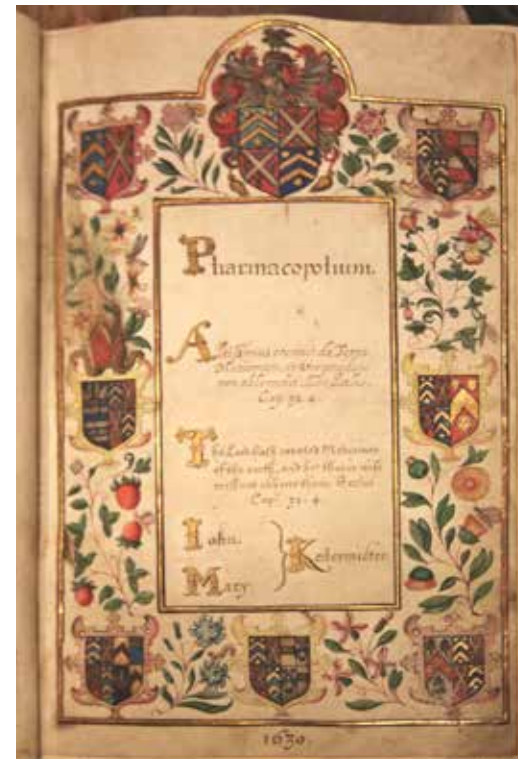 Pharmacopolium.
Altissimus creavit de Terra
Medicinam, et vir prudens
non abhorrebit
Cap. 38. 4.
The Lord hath created Medicines
of the earth, and he that is wise
will not abhorre them.
Cap. 38. 4.
Iohn.
Mary.
Kedermister.
1630.